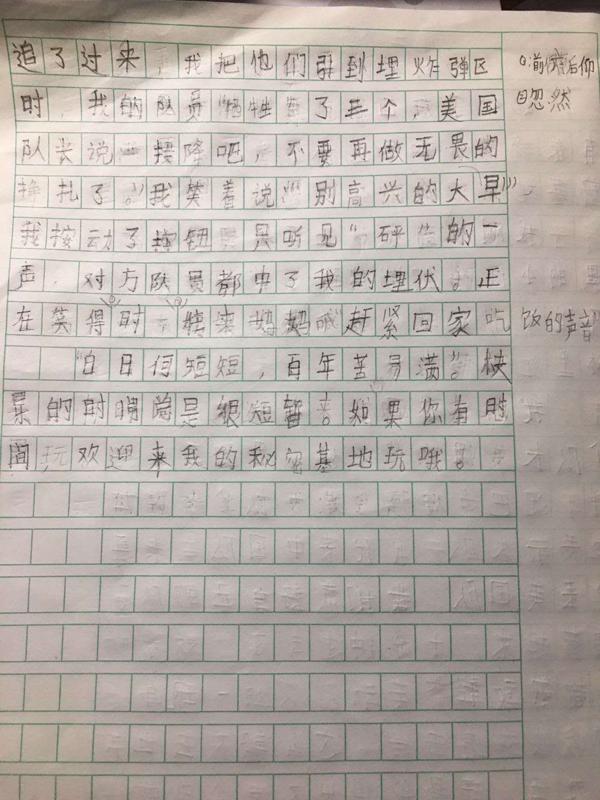 追了过来，我把他们引到埋炸弹区
①前俯后仰
时，我的队员"牺牲"了三个，美国
②忽然
队长说："投降吧，不要再做无畏的
挣扎了。"我笑着说："别高兴的太早"
我按动了按钮，只听见"砰"的一
声，对方队员都中了我的埋伏。正
在笑得①时，②传来妈妈喊"赶紧回家吃饭的声音"
"白日何短短，百年苦易满"。快
乐的时间总是很短暂。如果你有时
间玩欢迎来我的秘密基地玩哦。